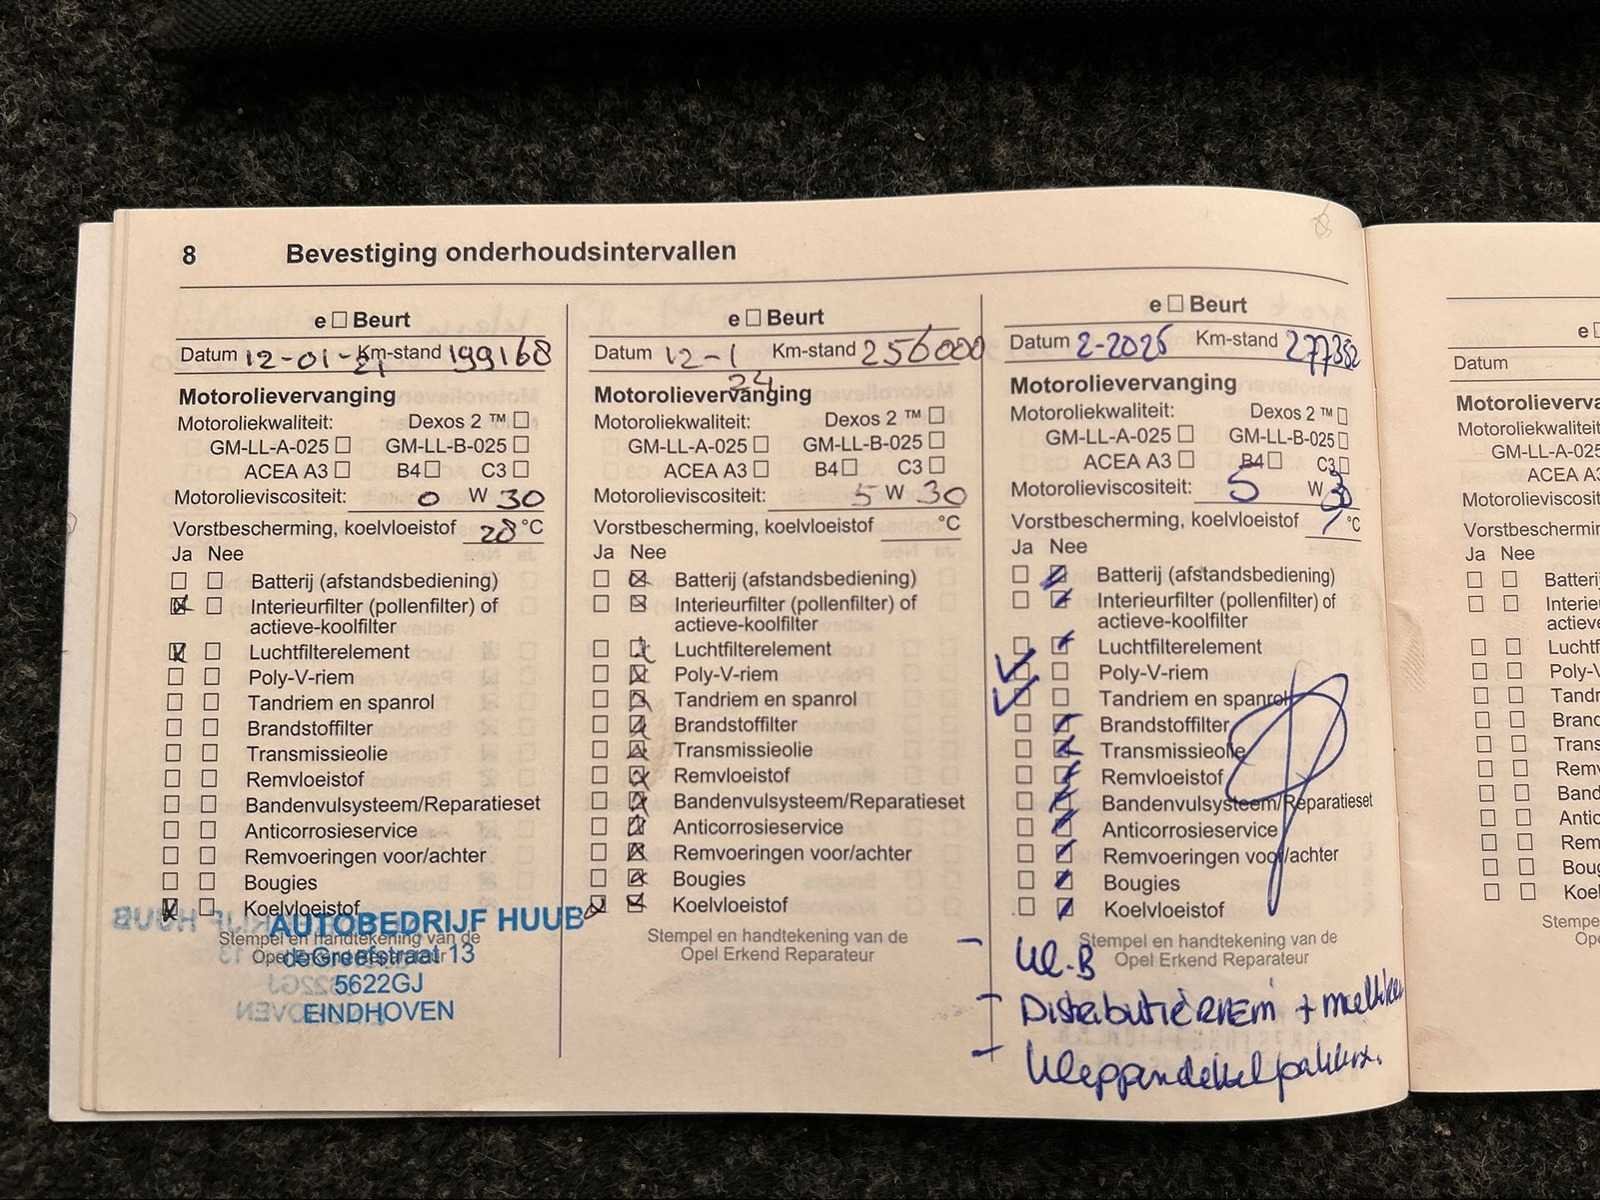 8 Bevestiging onderhoudsintervallen
e □ Beurt
Datum 12-01-21 Km-stand 199168
Motorolievervanging
Motoroliekwaliteit: Dexos 2 ™ □
GM-LL-A-025 □ GM-LL-B-025 □
ACEA A3 □ B4 □ C3 □
Motorolieviscositeit: 0 W 30
Vorstbescherming, koelvloeistof 28 °C
Ja Nee
Batterij (afstandsbediening)
Interieurfilter (pollenfilter) of
actieve-koolfilter
Luchtfilterelement
Poly-V-riem
Tandriem en spanrol
Brandstoffilter
Transmissieolie
Remvloeistof
Bandenvulsysteem/Reparatieset
Anticorrosieservice
Remvoeringen voor/achter
Bougies
Koelvloeistof
Stempel en handtekening van de
Opel Erkend Reparateur
AUTOBEDRIJF HUUB
deGreefstraat 13
5622GJ
EINDHOVEN
e □ Beurt
Datum 12-1 24 Km-stand 256000
Motorolievervanging
Motoroliekwaliteit: Dexos 2 ™ □
GM-LL-A-025 □ GM-LL-B-025 □
ACEA A3 □ B4 □ C3 □
Motorolieviscositeit: 5 W 30
Vorstbescherming, koelvloeistof °C
Ja Nee
Batterij (afstandsbediening)
Interieurfilter (pollenfilter) of
actieve-koolfilter
Luchtfilterelement
Poly-V-riem
Tandriem en spanrol
Brandstoffilter
Transmissieolie
Remvloeistof
Bandenvulsysteem/Reparatieset
Anticorrosieservice
Remvoeringen voor/achter
Bougies
Koelvloeistof
Stempel en handtekening van de
Opel Erkend Reparateur
e □ Beurt
Datum 2-2025 Km-stand 277382
Motorolievervanging
Motoroliekwaliteit: Dexos 2 ™ □
GM-LL-A-025 □ GM-LL-B-025 □
ACEA A3 □ B4 □ C3 □
Motorolieviscositeit: 5 W 30
Vorstbescherming, koelvloeistof / °C
Ja Nee
Batterij (afstandsbediening)
Interieurfilter (pollenfilter) of
actieve-koolfilter
Luchtfilterelement
Poly-V-riem
Tandriem en spanrol
Brandstoffilter
Transmissieolie
Remvloeistof
Bandenvulsysteem/Reparatieset
Anticorrosieservice
Remvoeringen voor/achter
Bougies
Koelvloeistof
Stempel en handtekening van de
Opel Erkend Reparateur
- Kl.B
- Distributieriem +
- Kleppendeksel
e □
Datum
Motorolieverva
Motoroliekwaliteit
GM-LL-A-025
ACEA A3
Motorolieviscosit
Vorstbeschermin
Ja Nee
Batterij
Interieu
actieve
Luchtf
Poly-V
Tandri
Brand
Trans
Remv
Band
Antic
Rem
Boug
Koel
Stemp
Op